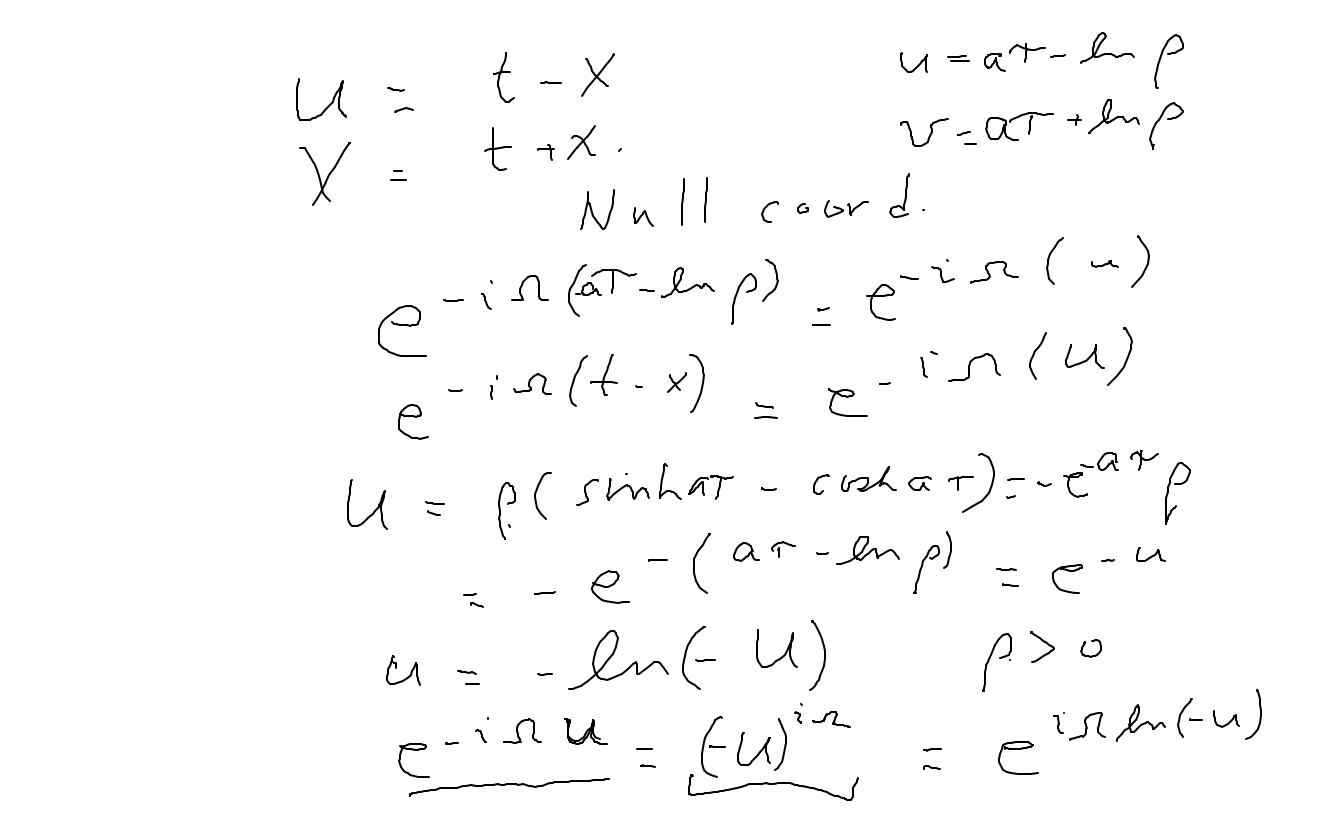 U = t - x        u = aτ - ln ρ
V = t + x.        v = aτ + ln ρ
Null coord.
e^{-iΩ(aτ - ln ρ)} = e^{-iΩ(u)}
e^{-iΩ(t - x)} = e^{-iΩ(U)}
U = ρ(sinh aτ - cosh aτ) = -e^{-aτ} ρ
= -e^{-(aτ - ln ρ)} = e^{-u}
u = -ln(-U)        ρ > 0
e^{-iΩu} = (-U)^{iΩ} = e^{iΩ ln(-U)}